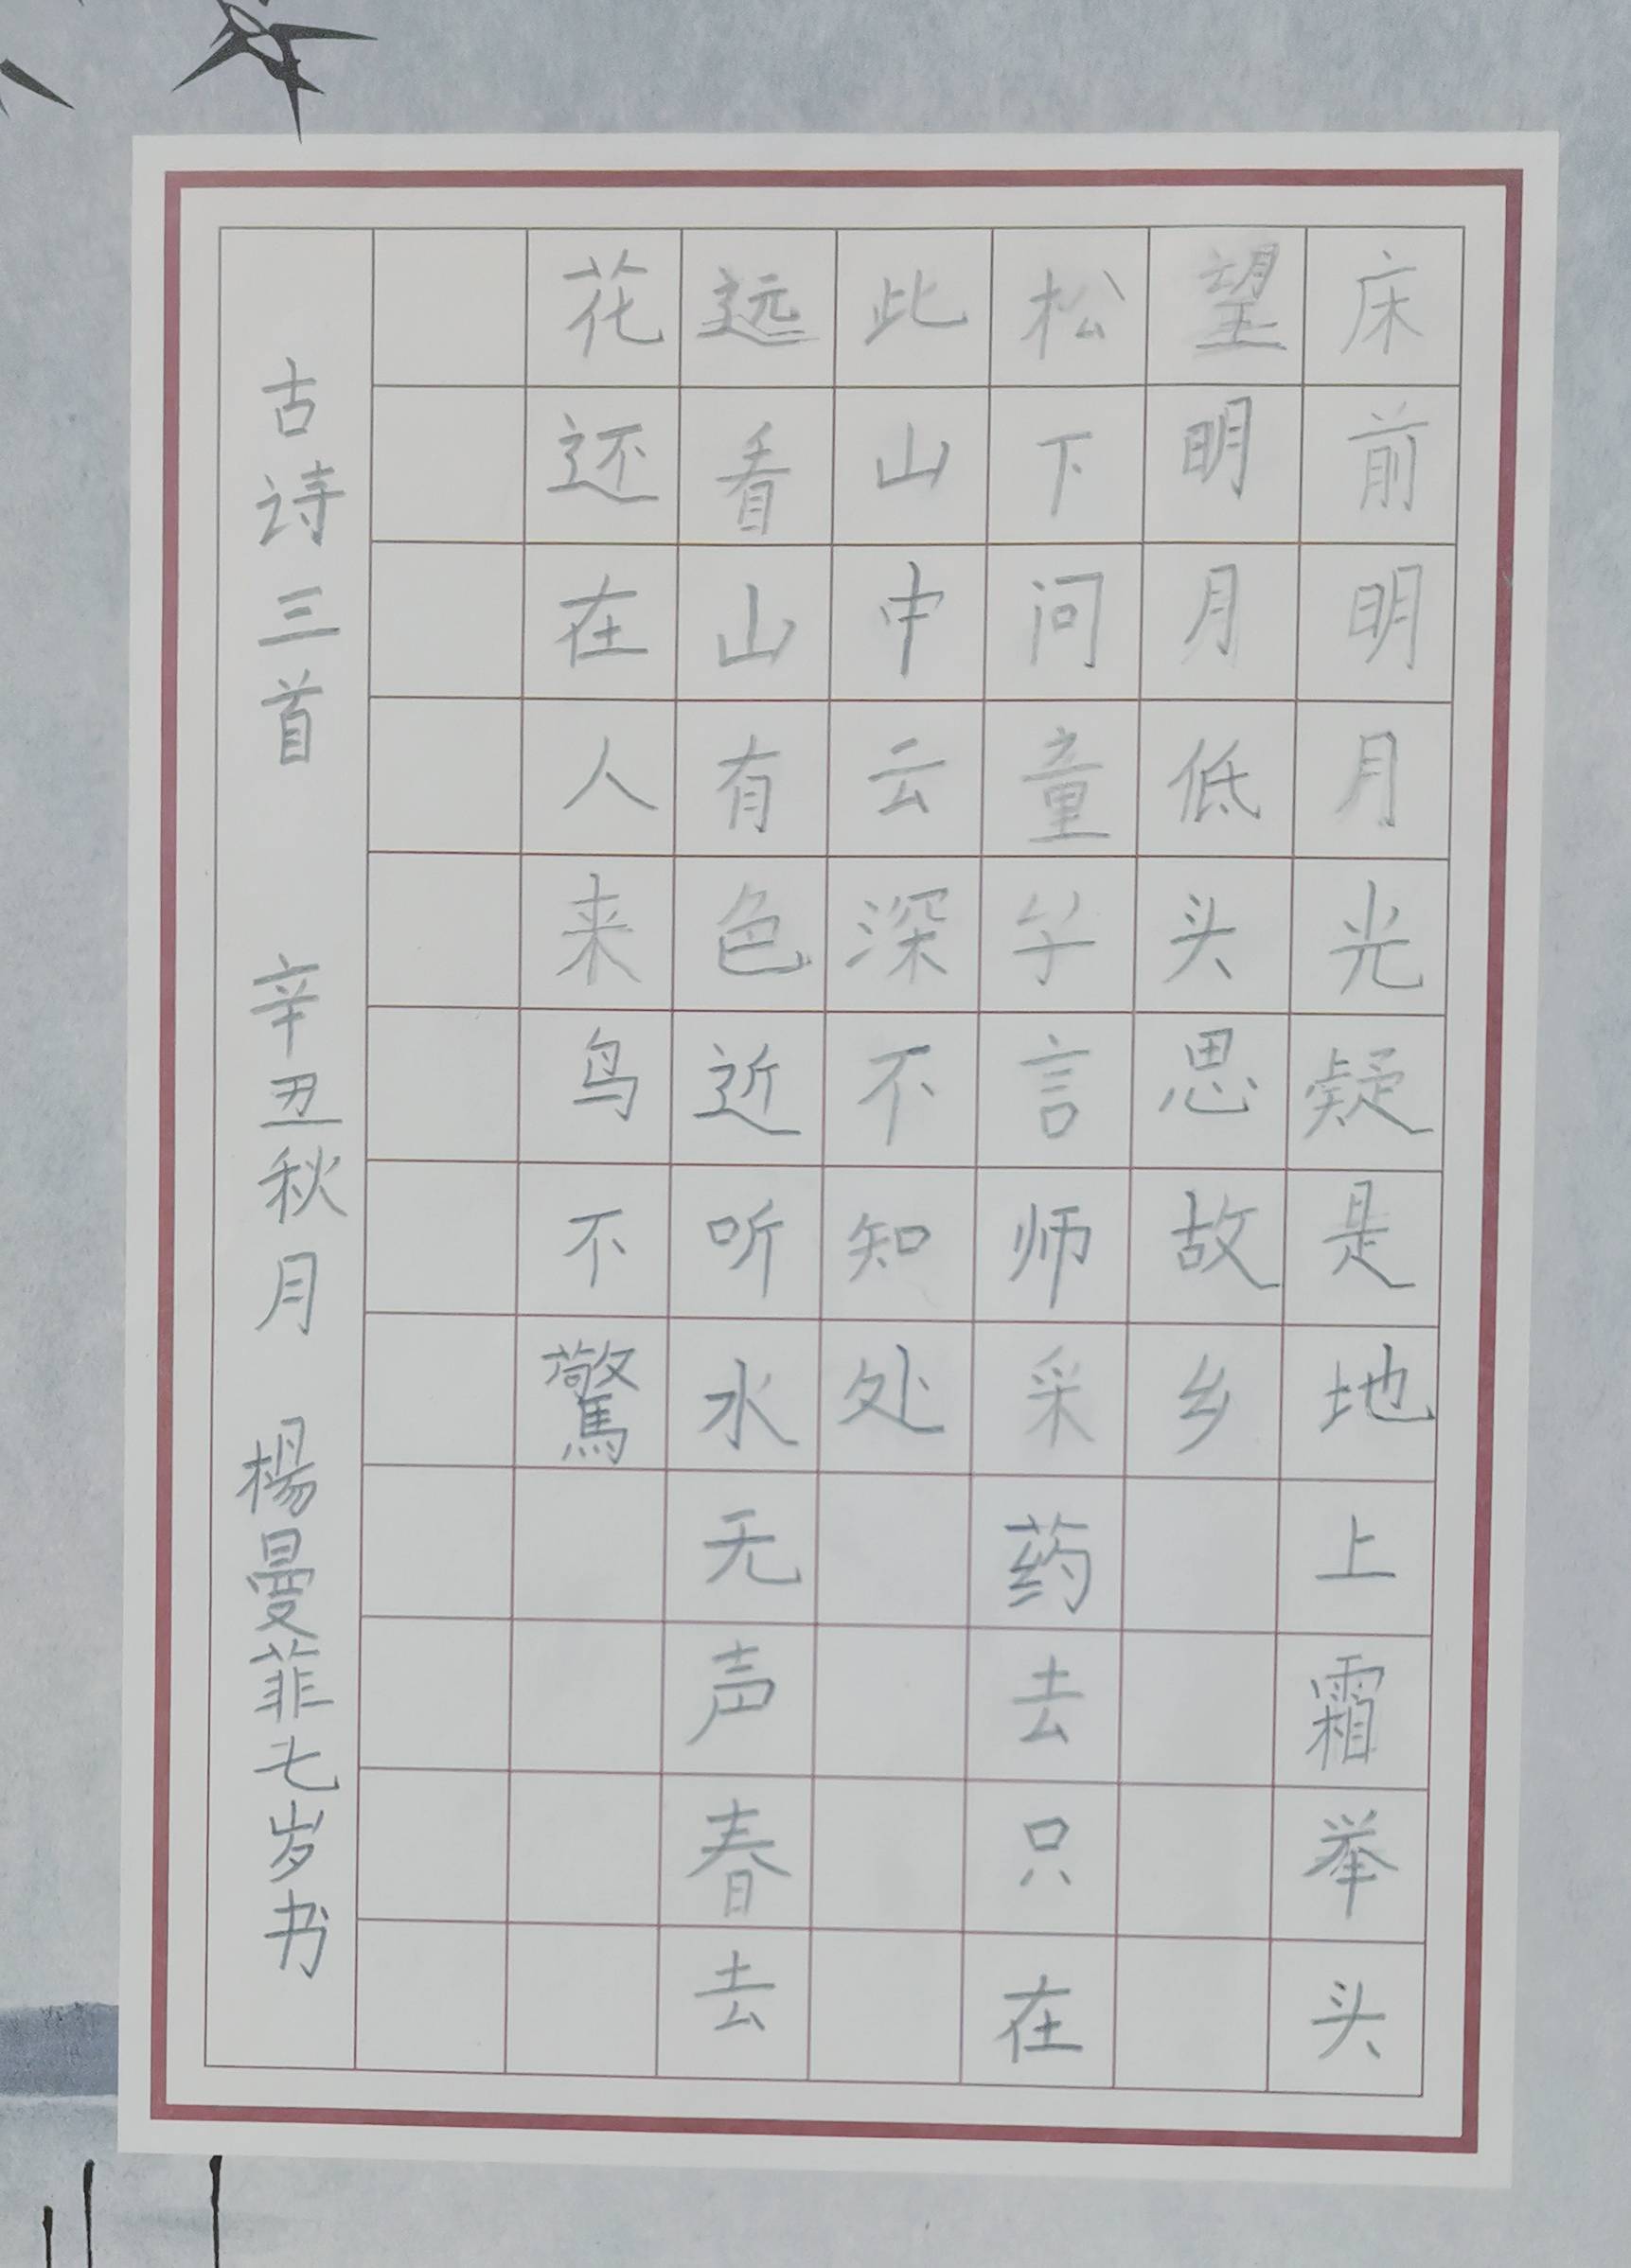 床前明月光疑是地上霜举头
望明月低头思故乡
松下问童子言师采药去只在
此山中云深不知处
远看山有色近听水无声春去
花还在人来鸟不驚
古诗三首 辛丑秋月 楊曼菲七岁书